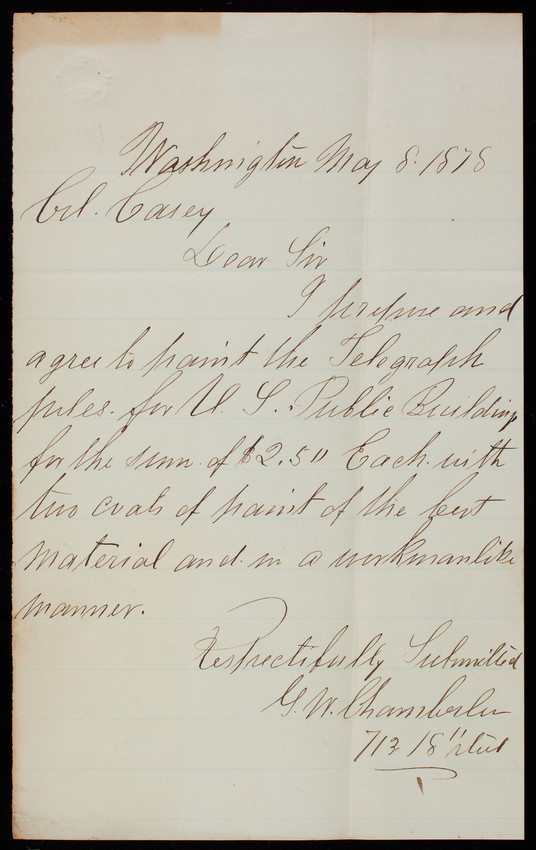 Washington May 8. 1878
Col. Casey
Dear Sir
I propose and
agree to paint the Telegraph
poles. for U. S. Public Buildings
for the sum of $2.50 Each. with
two coats of paint of the best
material and in a workmanlike
manner.
Respectifully Submitted
G. W. Chamberlin
713 18" street